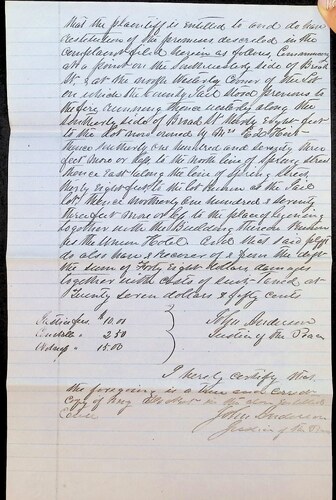 that the plaintiff is entitled to and do have
restitution of the premises described in the
complaint filed herein as follows, Commencing
at a point on the southerly side of Broad
St at the north westerly corner of the lot
on which the County Jail stood previous to
the fire running thence westerly along the
southerly side of Broad St thirty eight feet
to the lot now owned by Mrs
thence southerly one hundred and seventy three
feet more or less to the north line of Spring street
thence East along the line of Spring street
thirty Eight feet to the lot known as the Jail
lot, thence northerly one hundred & seventy
three feet more or less to the place of beginning
together with the Building thereon known
as the Union Hotel And that said plff
do also have & recover of & from the deft
the sum of Forty Eight Dollars damages
together with costs of suit taxed at
Twenty seven dollars & fifty cents
Justice fees $10.00
Constable " 2.50
" 15.00
John Anderson
Justice of the Peace
I hereby certify that
the foregoing is a true and correct
copy of my Docket in the
John Anderson
Justice of the Peace